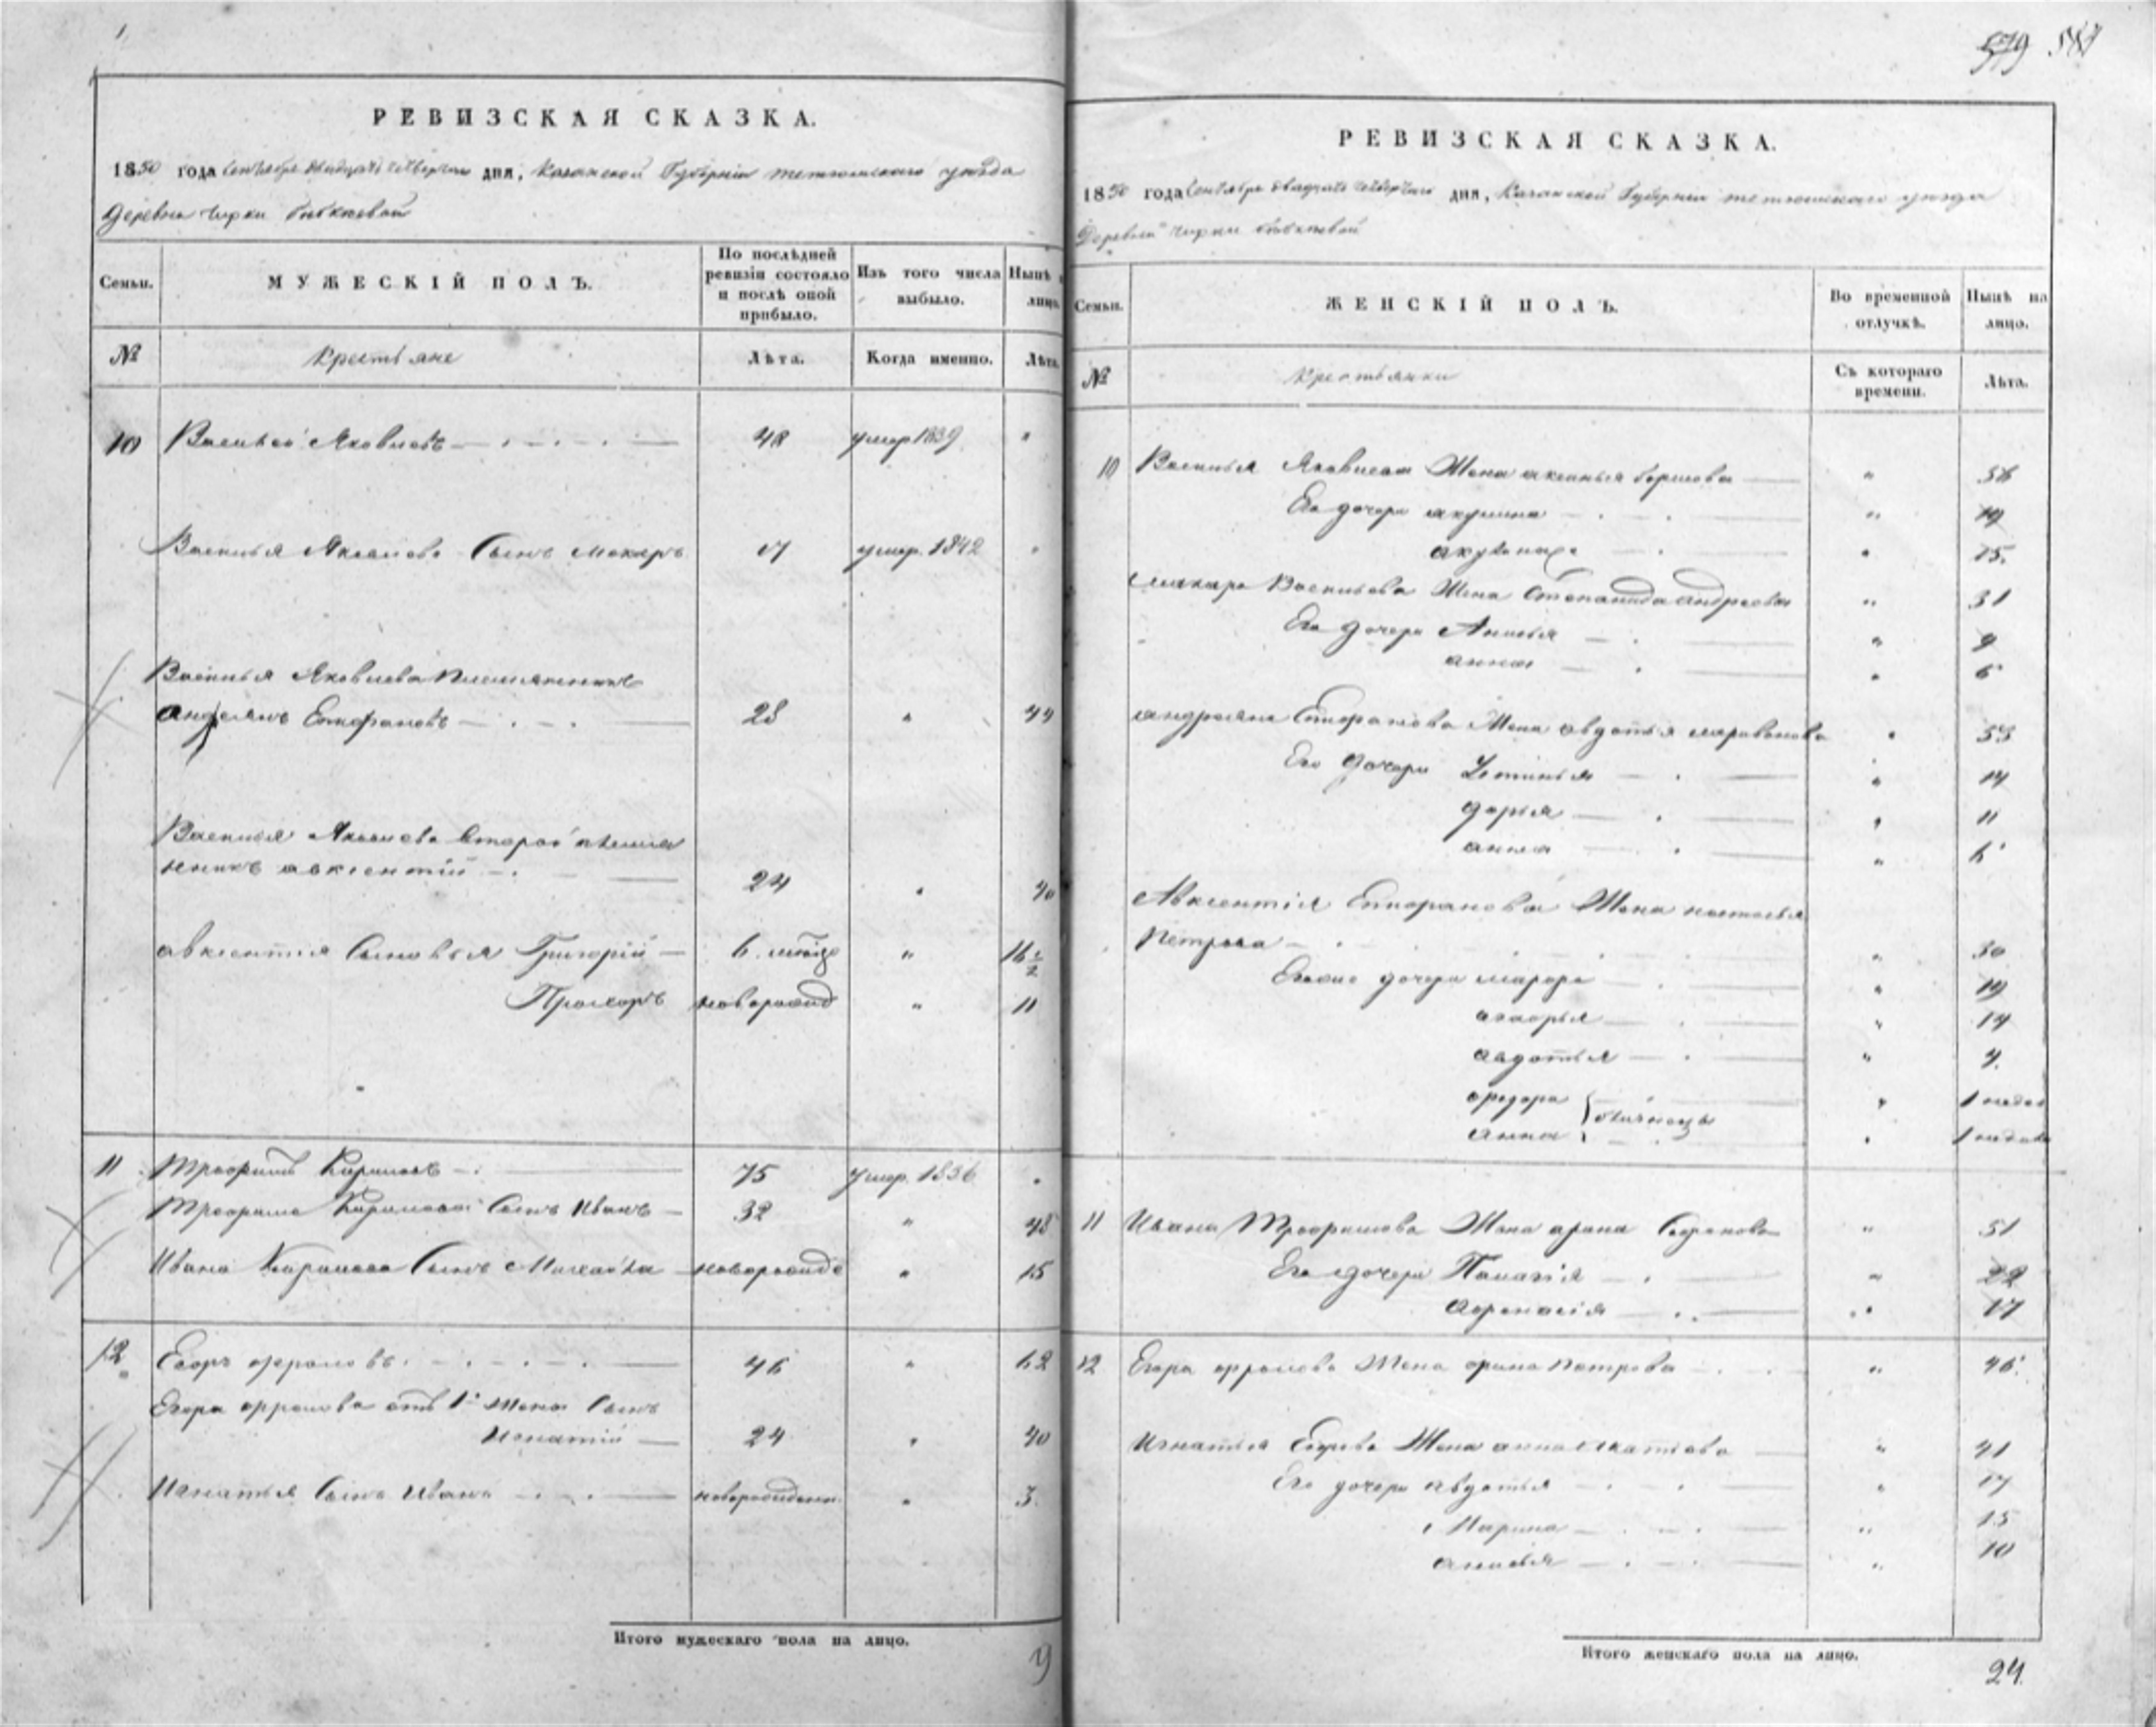 579
РЕВИЗСКАЯ СКАЗКА.
1850 года Сентября двадцать четвертаго дня, Казанской Губернiи тетюшскаго уѣзда
деревни чирки
Семьи.
МУЖЕСКIЙ ПОЛЪ.
По послѣдней ревизiи состояло и послѣ оной прибыло.
Изъ того числа выбыло.
Нынѣ
лицо.
№
Крестьяне
Лѣта.
Когда именно.
Лѣта.
10 Василей Яковлевъ 48 умер 1839
Василья Яковлева Сынъ Макаръ 17 умер. 1842
Василья Яковлева племянникъ
андреянъ Епифановъ 28 " 44
Василья Яковлева второй племян
никъ авксентiй 24 " 40
авксентiя Сыновья Григорiй 6. "
Прохоръ новорожд " 11
11 Трофимъ Кириловъ 75 умер. 1836
Трофима Кирилова Сынъ Иванъ 32 " 48
Ивана Кирилова Сынъ Михайла новорожде " 15
12 Егоръ фроловъ 46 " 62
Егора фролова отъ 1й жены Сынъ
Игнатiй 24 " 40
Игнатья Сынъ Иванъ новорожденн " 3.
Итого мужескаго пола на лицо. 9
РЕВИЗСКАЯ СКАЗКА.
1850 года Сентября двадцать четвертаго дня, Казанской Губернiи тетюшскаго уѣзда
Деревни чирки
Семьи.
ЖЕНСКIЙ ПОЛЪ.
Во временной отлучкѣ.
Нынѣ на лицо.
№
Крестьянки
Съ котораго времени.
Лѣта.
10 Василья Яковлева Жена аксинья "
Его дочери акулина " 19
" 15.
макара Васильева Жена Степанида андреева " 31
Его дочери Анисья " 9
анна " 6
андреяна Епифанова Жена авдотья "
Его дочери Устинья " 14
дарья " 11
анна " 6
Авксентiя Епифанова Жена настасья
Петрова " 36
Его дочери марфа " 19
" 14
авдотья "
федора } близнецы " 1 недел
анна " 1 недел
11 Ивана Трофимова Жена арина " 51
Его дочери Палагiя " 22
афанасiя " 17
12 Егора фролова Жена орина петрова " 46
Игнатья Егорова Жена анна " 41
Его дочери авдотья " 17
Марина " 15
анисья " 10
Итого женскаго пола на лицо. 24